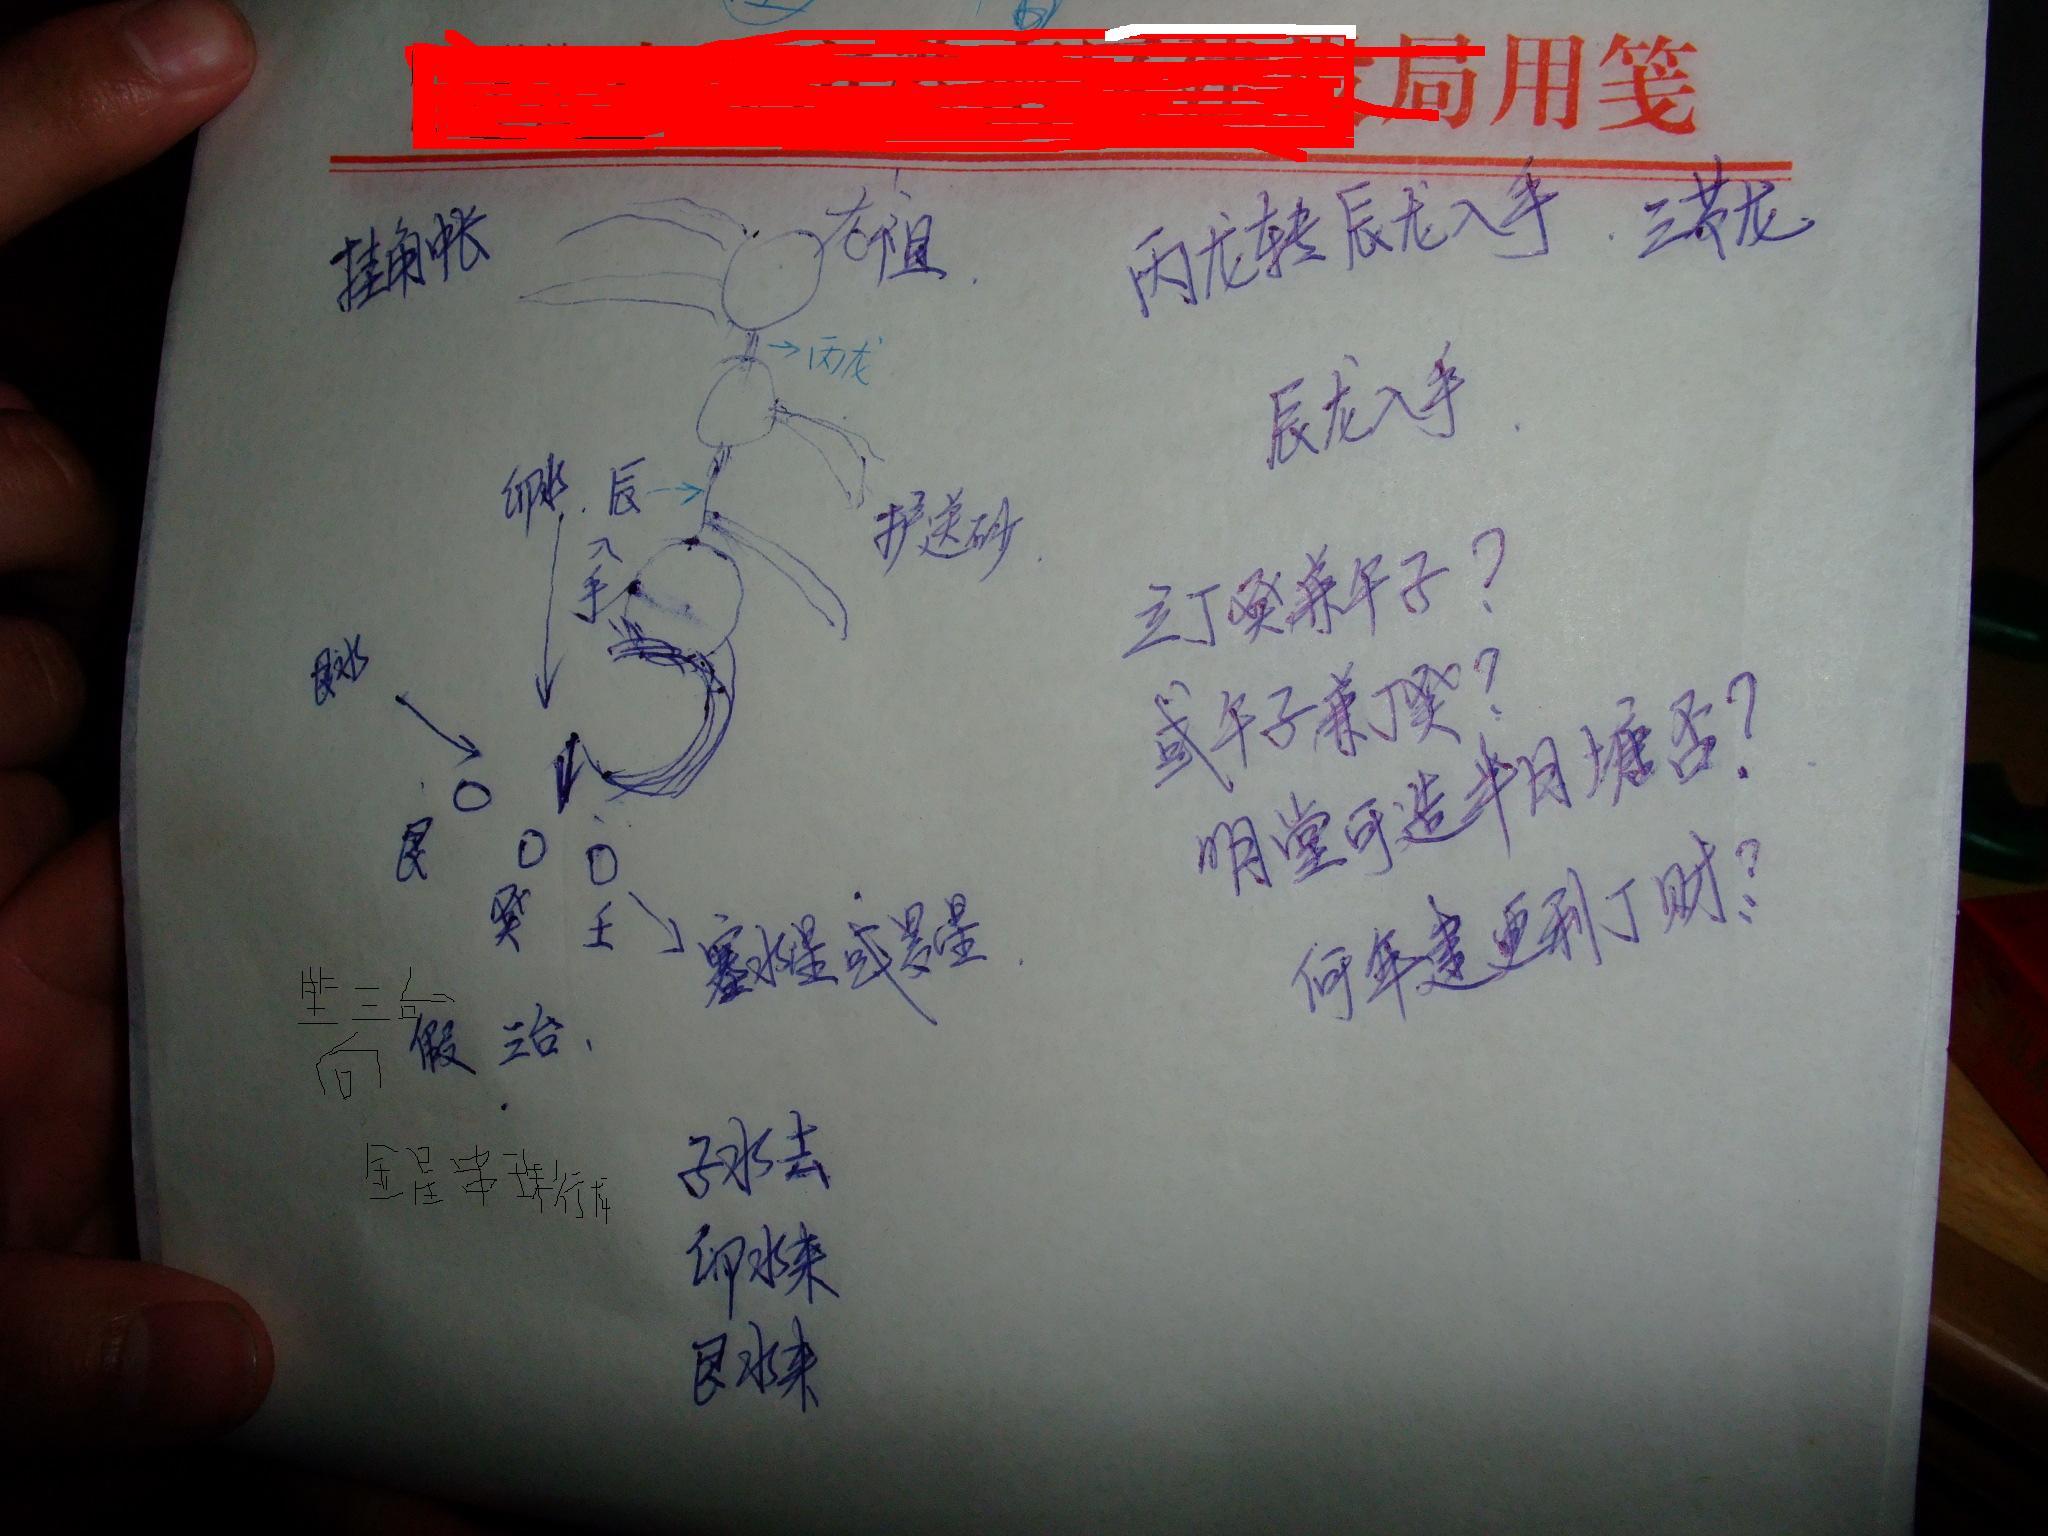 局用笺
挂角中帐
太祖
丙龙转辰龙入手. 三节龙
丙龙
辰龙入手.
卯水. 辰
入手
护送砂.
艮水
立丁癸兼午子?
或午子兼丁癸?
明堂可造半月塘否?
何年建更利丁财?
艮
癸 壬
塞水星或晏星.
坐三台
向
假三台.
金星串珠行龙
子水去
卯水来
艮水来